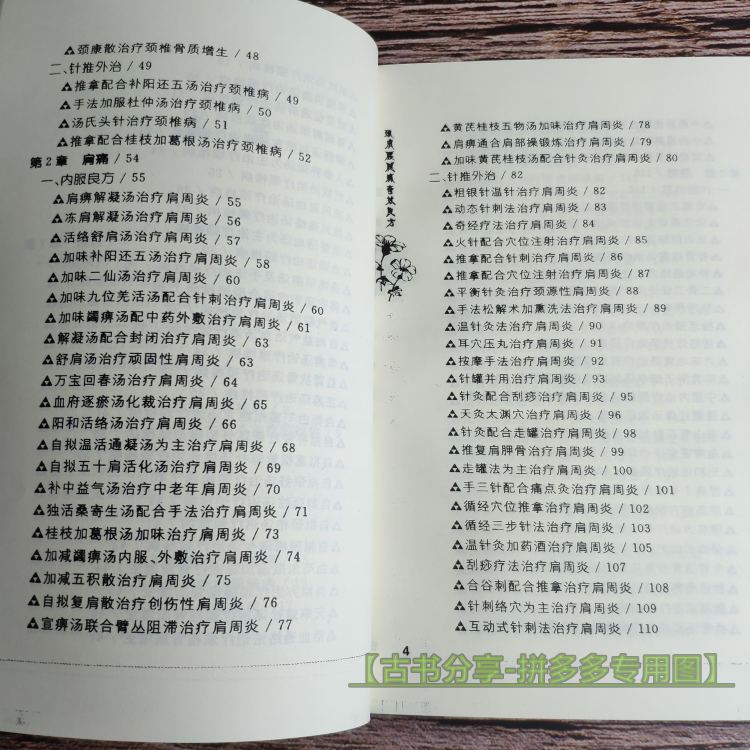 颈康散治疗颈椎骨质增生 / 48
二、针推外治 / 49
推拿配合补阳还五汤治疗颈椎病 / 49
手法加服杜仲汤治疗颈椎病 / 50
汤氏头针治疗颈椎病 / 51
推拿配合桂枝加葛根汤治疗颈椎病 / 52
第2章 肩痛 / 54
一、内服良方 / 55
肩痹解凝汤治疗肩周炎 / 55
冻肩解凝汤治疗肩周炎 / 56
活络舒肩汤治疗肩周炎 / 57
加味补阳还五汤治疗肩周炎 / 58
加味二仙汤治疗肩周炎 / 60
加味九位羌活汤配合针刺治疗肩周炎 / 60
加味蠲痹汤配中药外敷治疗肩周炎 / 61
解凝汤配合封闭治疗肩周炎 / 63
舒肩汤治疗顽固性肩周炎 / 63
万宝回春汤治疗肩周炎 / 64
血府逐瘀汤化裁治疗肩周炎 / 65
阳和活络汤治疗肩周炎 / 66
自拟温活通凝汤为主治疗肩周炎 / 68
自拟五十肩活化汤治疗肩周炎 / 69
补中益气汤治疗中老年肩周炎 / 70
独活桑寄生汤配合手法治疗肩周炎 / 71
桂枝加葛根汤加味治疗肩周炎 / 73
加减蠲痹汤内服、外敷治疗肩周炎 / 74
加减五积散治疗肩周炎 / 75
自拟复肩散治疗创伤性肩周炎 / 76
宣痹汤联合臂丛阻滞治疗肩周炎 / 77
颈肩腰腿痛奇效良方
黄芪桂枝五物汤加味治疗肩周炎 / 78
肩痹通合肩部操锻炼治疗肩周炎 / 79
加味黄芪桂枝汤配合针灸治疗肩周炎 / 80
二、针推外治 / 82
粗银针温针治疗肩周炎 / 82
动态针刺法治疗肩周炎 / 83
奇经疗法治疗肩周炎 / 84
火针配合穴位注射治疗肩周炎 / 85
推拿配合针刺治疗肩周炎 / 86
推拿配合穴位注射治疗肩周炎 / 87
平衡针灸治疗颈源性肩周炎 / 88
手法松解术加熏洗法治疗肩周炎 / 89
温针灸法治疗肩周炎 / 90
耳穴压丸治疗肩周炎 / 91
按摩手法治疗肩周炎 / 92
针罐并用治疗肩周炎 / 93
针灸配合刮痧治疗肩周炎 / 95
天灸太渊穴治疗肩周炎 / 96
针灸配合走罐治疗肩周炎 / 98
推复肩胛骨治疗肩周炎 / 99
走罐法为主治疗肩周炎 / 100
手三针配合痛点灸治疗肩周炎 / 101
循经穴位推拿治疗肩周炎 / 102
循经三步针法治疗肩周炎 / 103
温针灸加药酒治疗肩周炎 / 105
刮痧疗法治疗肩周炎 / 107
合谷刺配合推拿治疗肩周炎 / 108
针刺络穴为主治疗肩周炎 / 109
互动式针刺法治疗肩周炎 / 110
4
【古书分享-拼多多专用图】